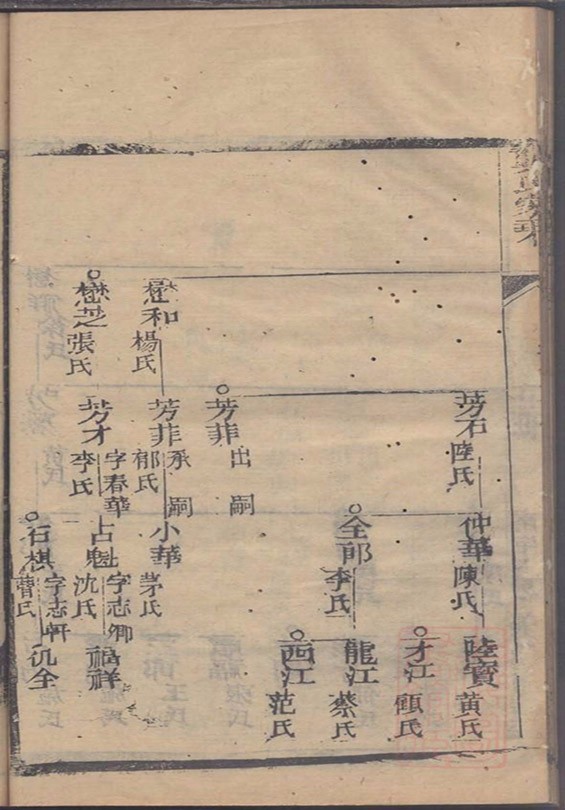 芳石陸氏
仲華陳氏
陸寶黃氏
才江顧氏
全郎李氏
龍江蔡氏
西江范氏
芳菲出嗣
懋和楊氏
芳菲承嗣郁氏
小華茅氏
懋芝張氏
芳才字春華李氏
占魁字志卿沈氏
福祥
石棋字志軒曹氏
仉全